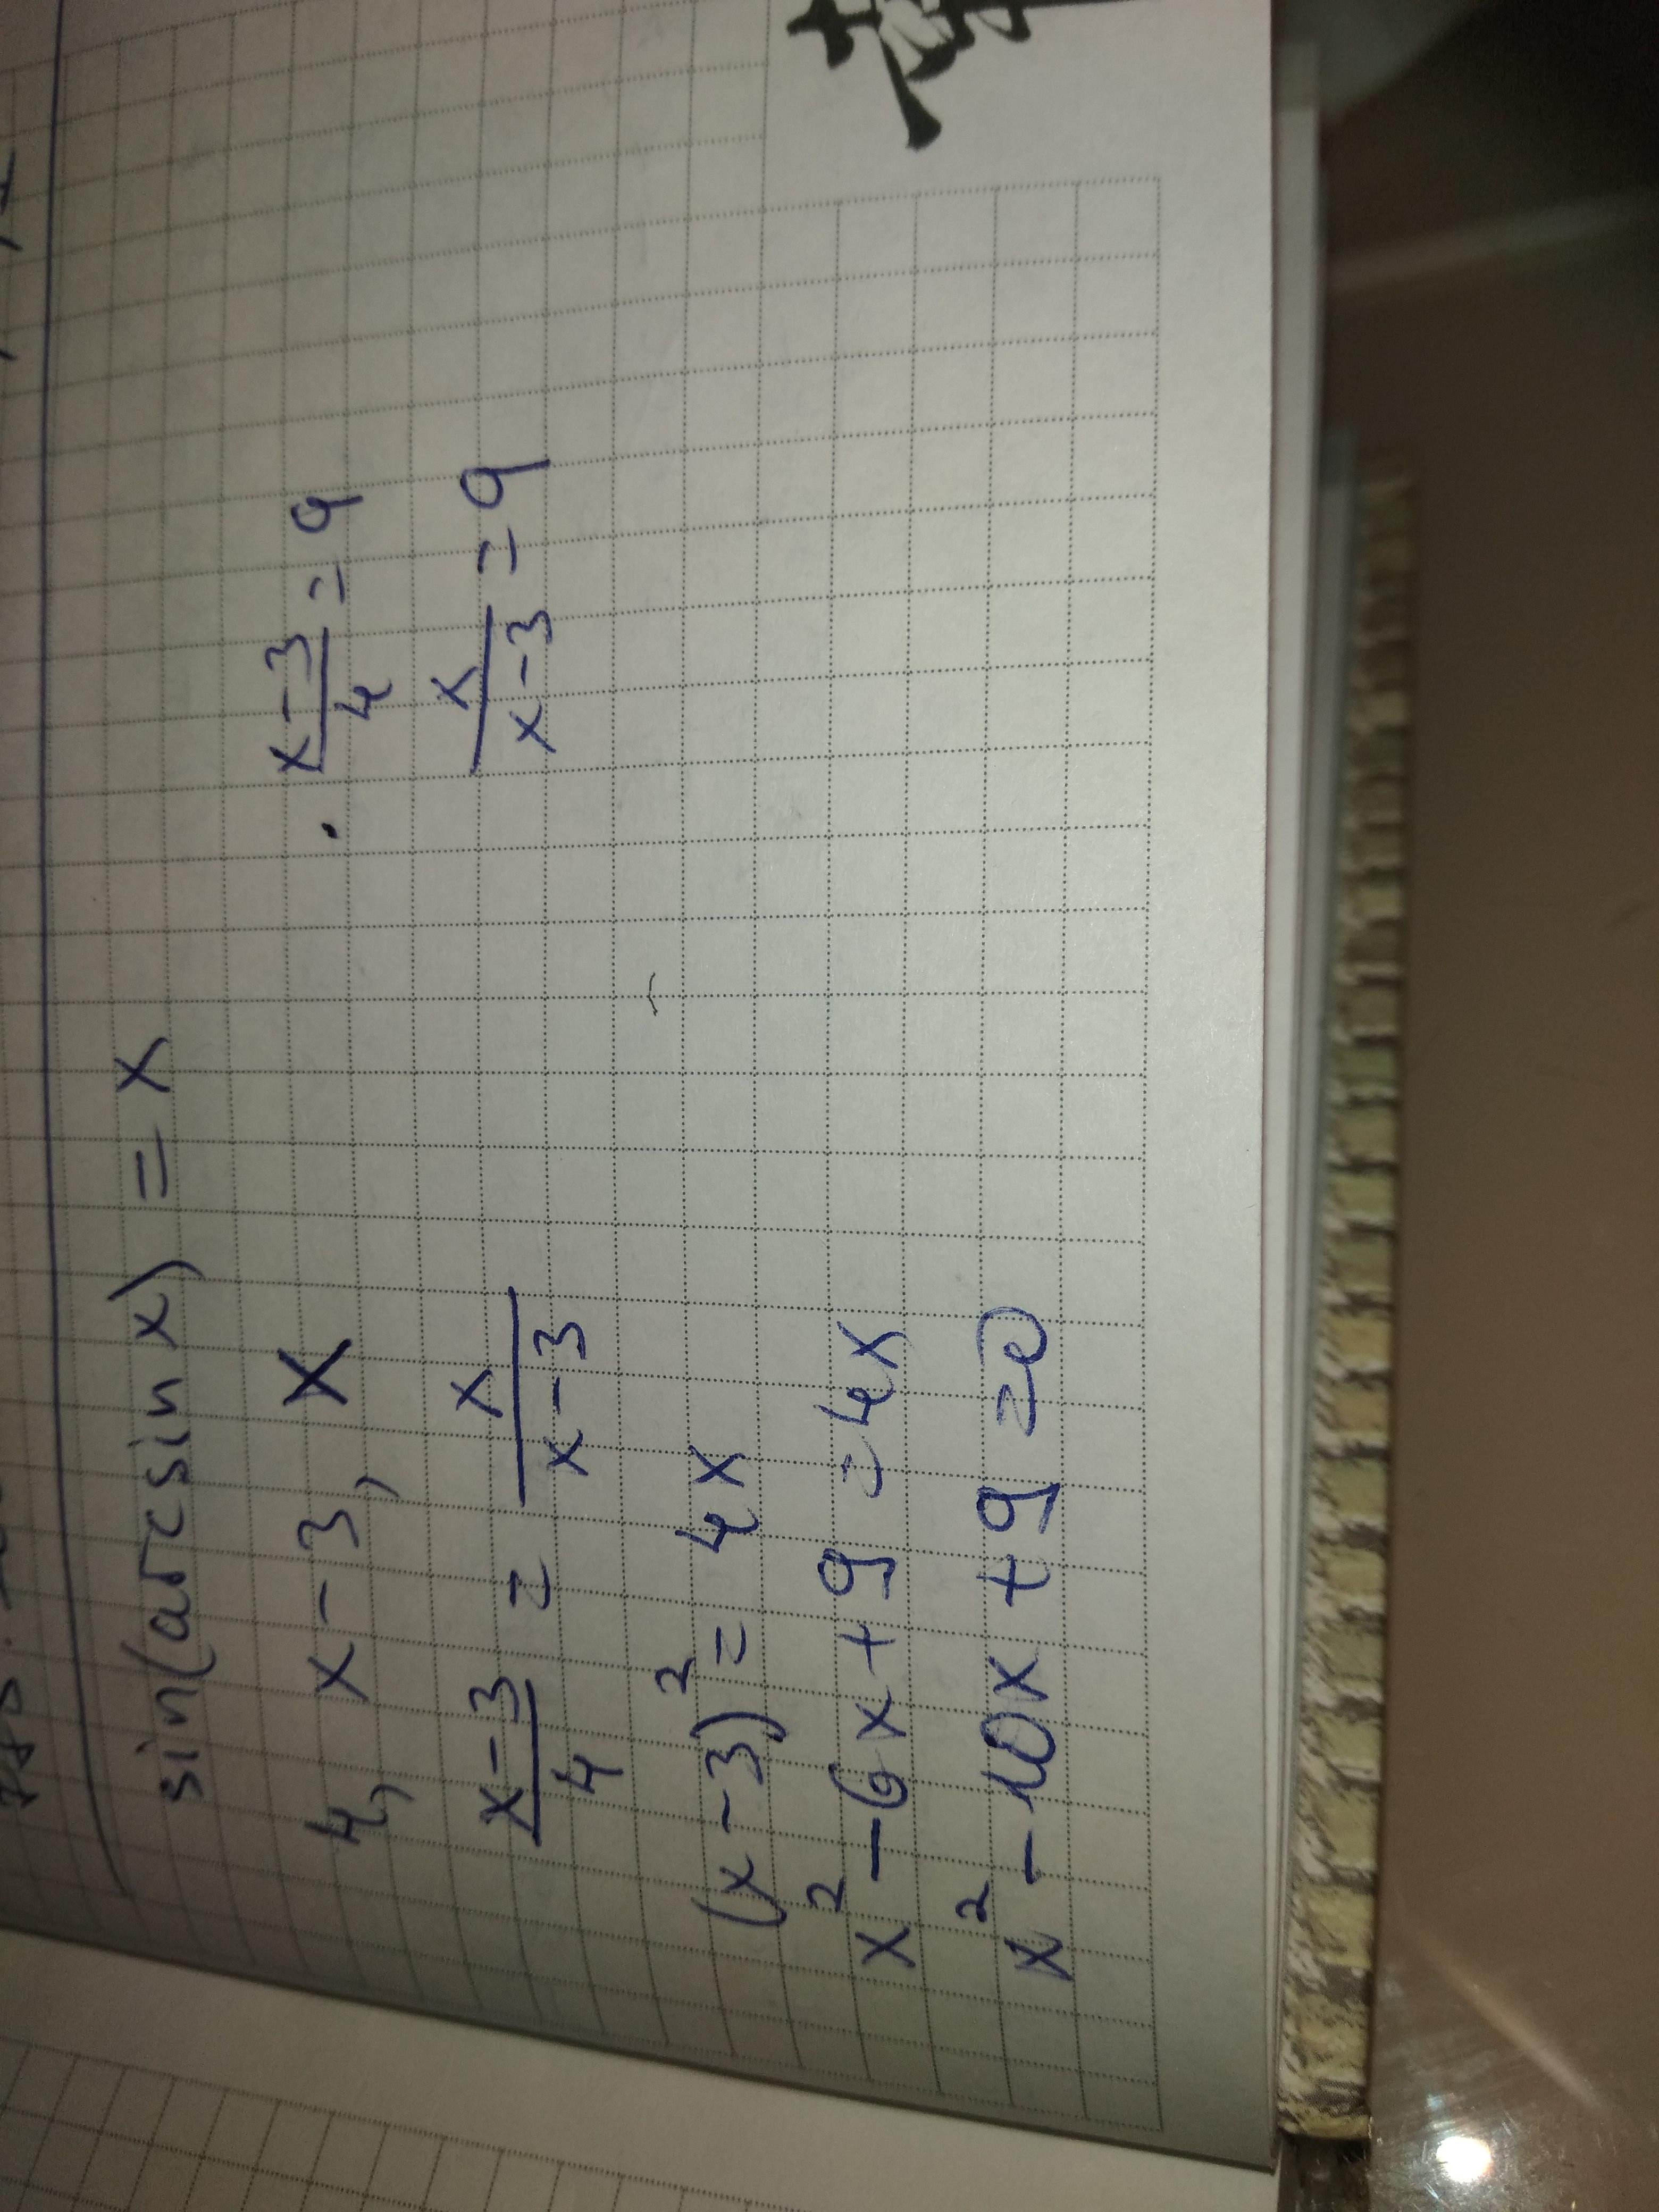 sin(arcsin x) = x
4, x-3, x
(x-3)/4 = x/(x-3)
(x-3)² = 4x
x² - 6x + 9 = 4x
x² - 10x + 9 = 0
(x-3)/4 = q
x/(x-3) = q